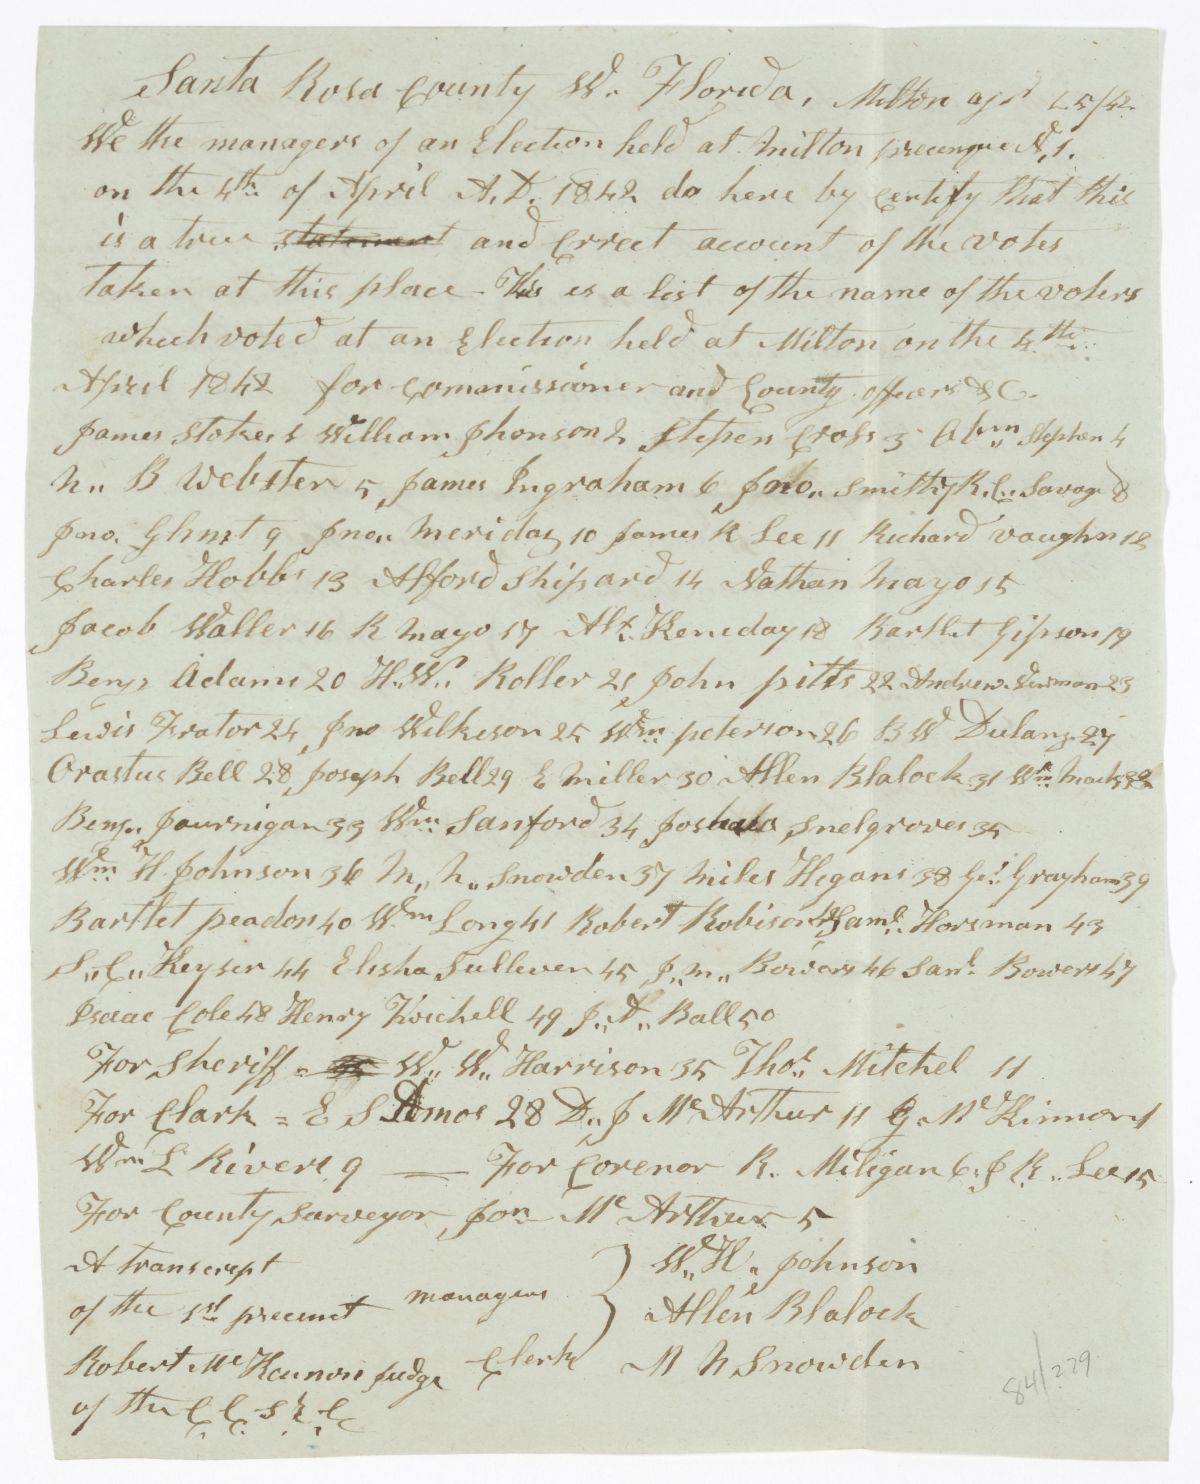 Santa Rosa County W. Florida, Milton apr 25/42
We the managers of an Election held at Milton precinque N,1.
on the 4th of April A,D. 1842 do here by Certify that this
is a true statement and Correct account of the votes
taken at this place - This is a list of the name of the voters
which voted at an Election held at Milton on the 4th
April 1842 for Commissioner and County officers &C.
James Stokes 1 William Jhonson 2 Stepen Cross 3 Abm Stephen 4
N,, B Webster 5 James Ingraham 6 Jno,, Smith 7 R,C,, Savage 8
Jno. Ghent 9 Jno,, Meriday 10 James R Lee 11 Richard Vaughn 12
Charles Hobbs 13 Alford Shipard 14 Nathan Mayo 15
Jacob Waller 16 R Mayo 17 Alx. Keneday 18 Bartlet Gipson 19
Benj. Adams 20 H.W. Roller 21 John pitts 22 Andrew 23
Lewis Frator 24 Jno Wilkeson 25 Wm peterson 26 B W Dulany 27
Orastus Bell 28 Joseph Bell 29 E Miller 30 Allen Blalock 31 Wm Mack 32
Benj,, Journigan 33 Wm Sanford 34 Joshua Snelgroves 35
Wm H Johnson 36 M,, N,, Snowden 37 Miles Higans 38 Geo. Grayham 39
Bartlet peadon 40 Wm Long 41 Robert Robison 42 Saml. Horsman 43
S,,C,, Keyser 44 Elisha Sulleven 45 J,,M,, Bowers 46 Saml. Bowers 47
Isaac Cole 48 Henry Twichell 49 J,,D,, Ball 50
For Sheriff - W,, W,, Harrison 35 Thos. Mitchel 11
For Clark = E S Amos 28 D,, J McArthur 11 G. McKinnon 1
Wm L Rivers 9 — For Corenor R. Miligan 6. J R,, Lee 15
For County Surveyor, Jon McArthur 5
A transcript
of the 1st precinct managers } W,, H,, Johnson
Allen Blalock
Robert McKennon Judge Clerk M N Snowden
of the C. C. S R C
84/279